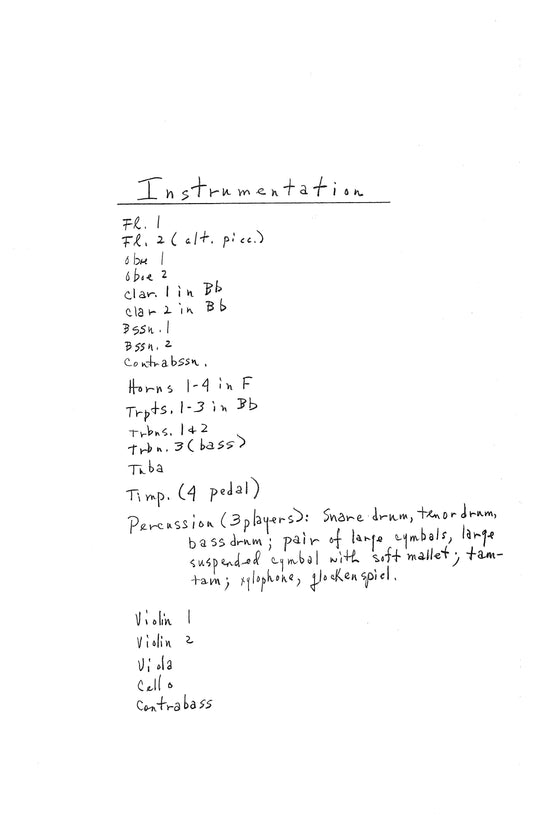 Instrumentation
Fl. 1
Fl. 2 (alt. picc.)
Oboe 1
Oboe 2
Clar. 1 in Bb
Clar 2 in Bb
Bssn. 1
Bssn. 2
Contrabssn.
Horns 1-4 in F
Trpts. 1-3 in Bb
Trbns. 1&2
Trbn. 3 (bass)
Tuba
Timp. (4 pedal)
Percussion (3 players): Snare drum, tenor drum,
bass drum; pair of large cymbals, large
suspended cymbal with soft mallet; tam-
tam; xylophone, glockenspiel.
Violin 1
Violin 2
Viola
Cello
Contrabass